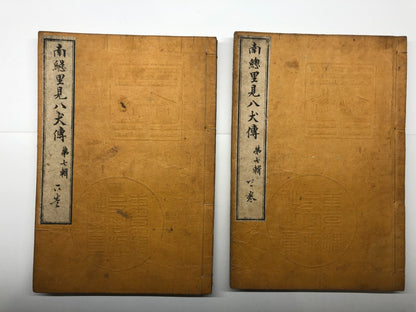 南總里見八犬傳 第七輯 六巻
南總里見八犬傳 第七輯 巻